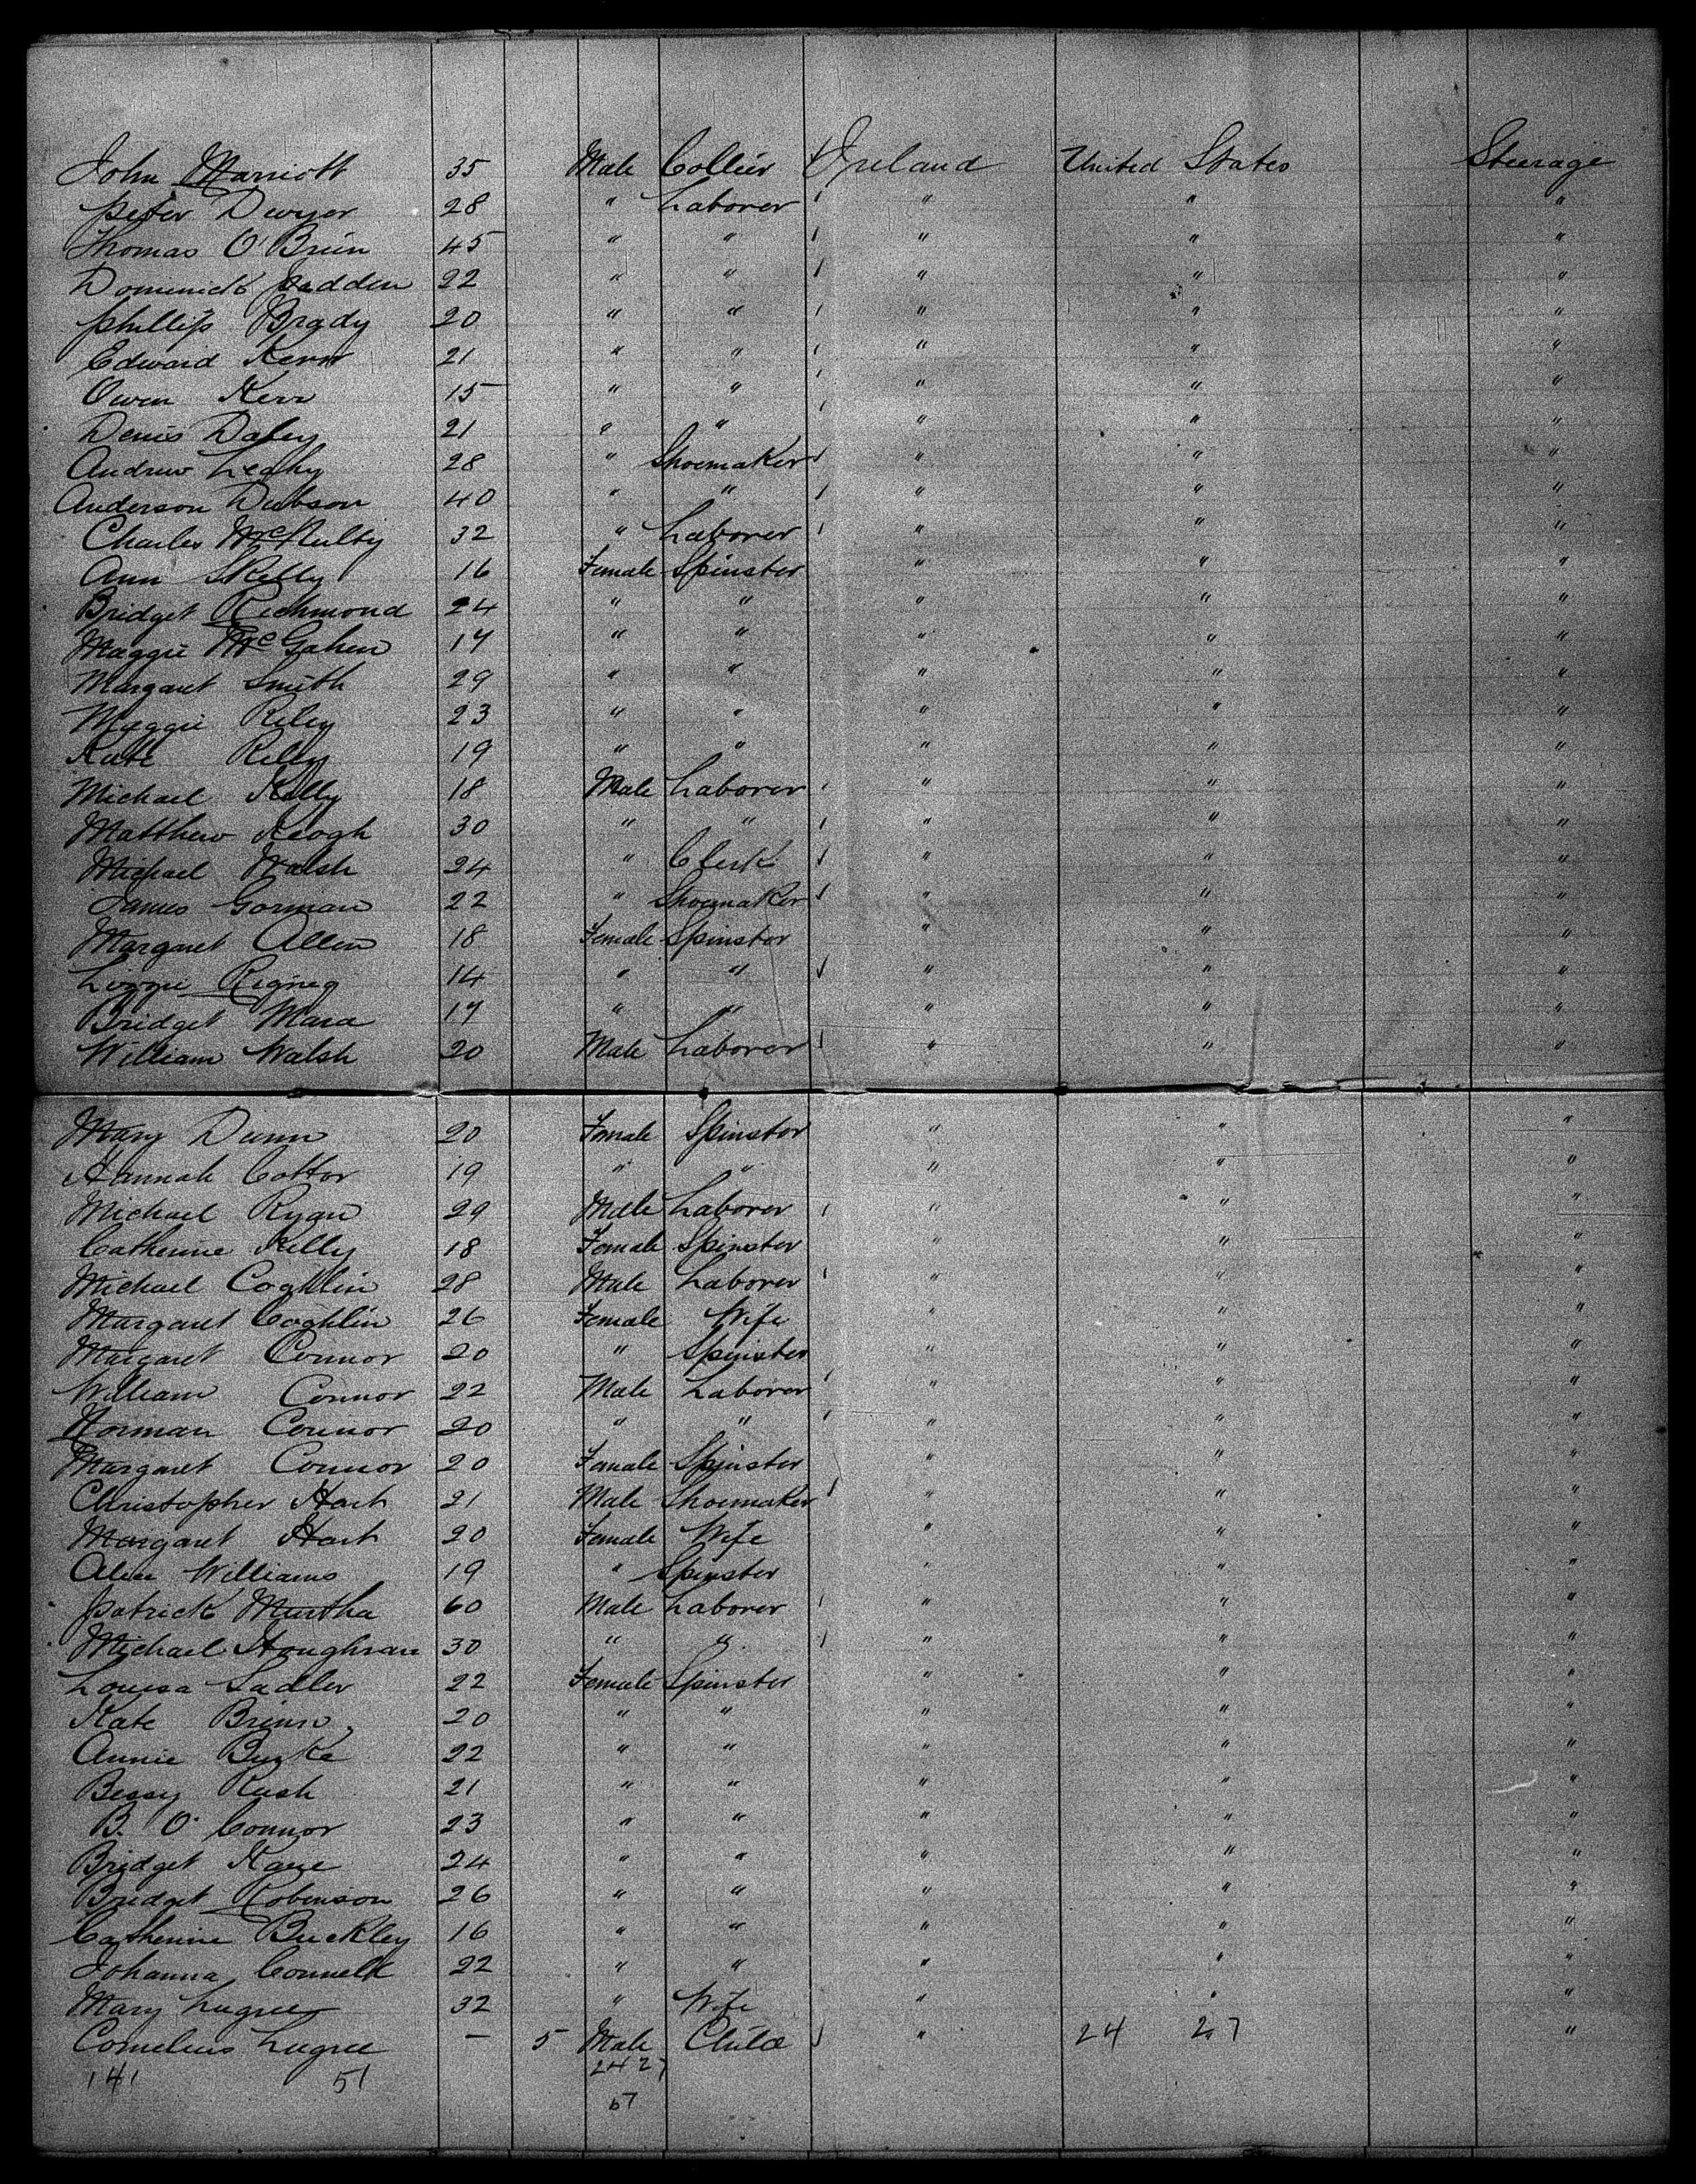 John Marriott 35 Male Collier Ireland United States Steerage
Peter Dwyer 28 " Laborer " " "
Thomas O'Brien 45 " " " " "
Dominick Padden 22 " " " " "
Phillip Brady 20 " " " " "
Edward Kerr 21 " " " " "
Owen Kerr 15 " " " " "
Denis Daley 21 " " " " "
Andrew Leahy 28 " Shoemaker " " "
Anderson Dobson 40 " " " " "
Charles McNulty 32 " Laborer " " "
Ann Skelly 16 Female Spinster " " "
Bridget Richmond 24 " " " " "
Maggie McGahen 17 " " " " "
Margaret Smith 29 " " " " "
Maggie Riley 23 " " " " "
Kate Reily 19 " " " " "
Michael Kelly 18 Male Laborer " " "
Matthew Keogh 30 " " " " "
Michael Walsh 24 " Clerk " " "
James Gorman 22 " Shoemaker " " "
Margaret Allen 18 Female Spinster " " "
Lizzie 14 " " " " "
Bridget Mara 17 " " " " "
William Walsh 20 Male Laborer " " "
Mary Dunn 20 Female Spinster " " "
Hannah Cotter 19 " " " " "
Michael Ryan 29 Male Laborer " " "
Catherine Kelly 18 Female Spinster " " "
Michael Coghlin 28 Male Laborer " " "
Margaret Coghlin 26 Female Wife " " "
Margaret Connor 20 " Spinster " " "
William Connor 22 Male Laborer " " "
Norman Connor 20 " " " " "
Margaret Connor 20 Female Spinster " " "
Christopher Hart 21 Male Shoemaker " " "
Margaret Hart 20 Female Wife " " "
Alice Williams 19 " Spinster " " "
Patrick Murtha 60 Male Laborer " " "
Michael Houghran 30 " " " " "
Louisa Sadler 22 Female Spinster " " "
Kate 20 " " " " "
Annie Burke 22 " " " " "
Bessy Rush 21 " " " " "
B. O'Connor 23 " " " " "
Bridget Kane 24 " " " " "
Bridget Robinson 26 " " " " "
Catherine Buckley 16 " " " " "
Johanna Connell 22 " " " " "
Mary Lugree 32 " Wife " " "
Cornelius Lugree — 5 Male Child " 24 27 "
141 51 24 27
67